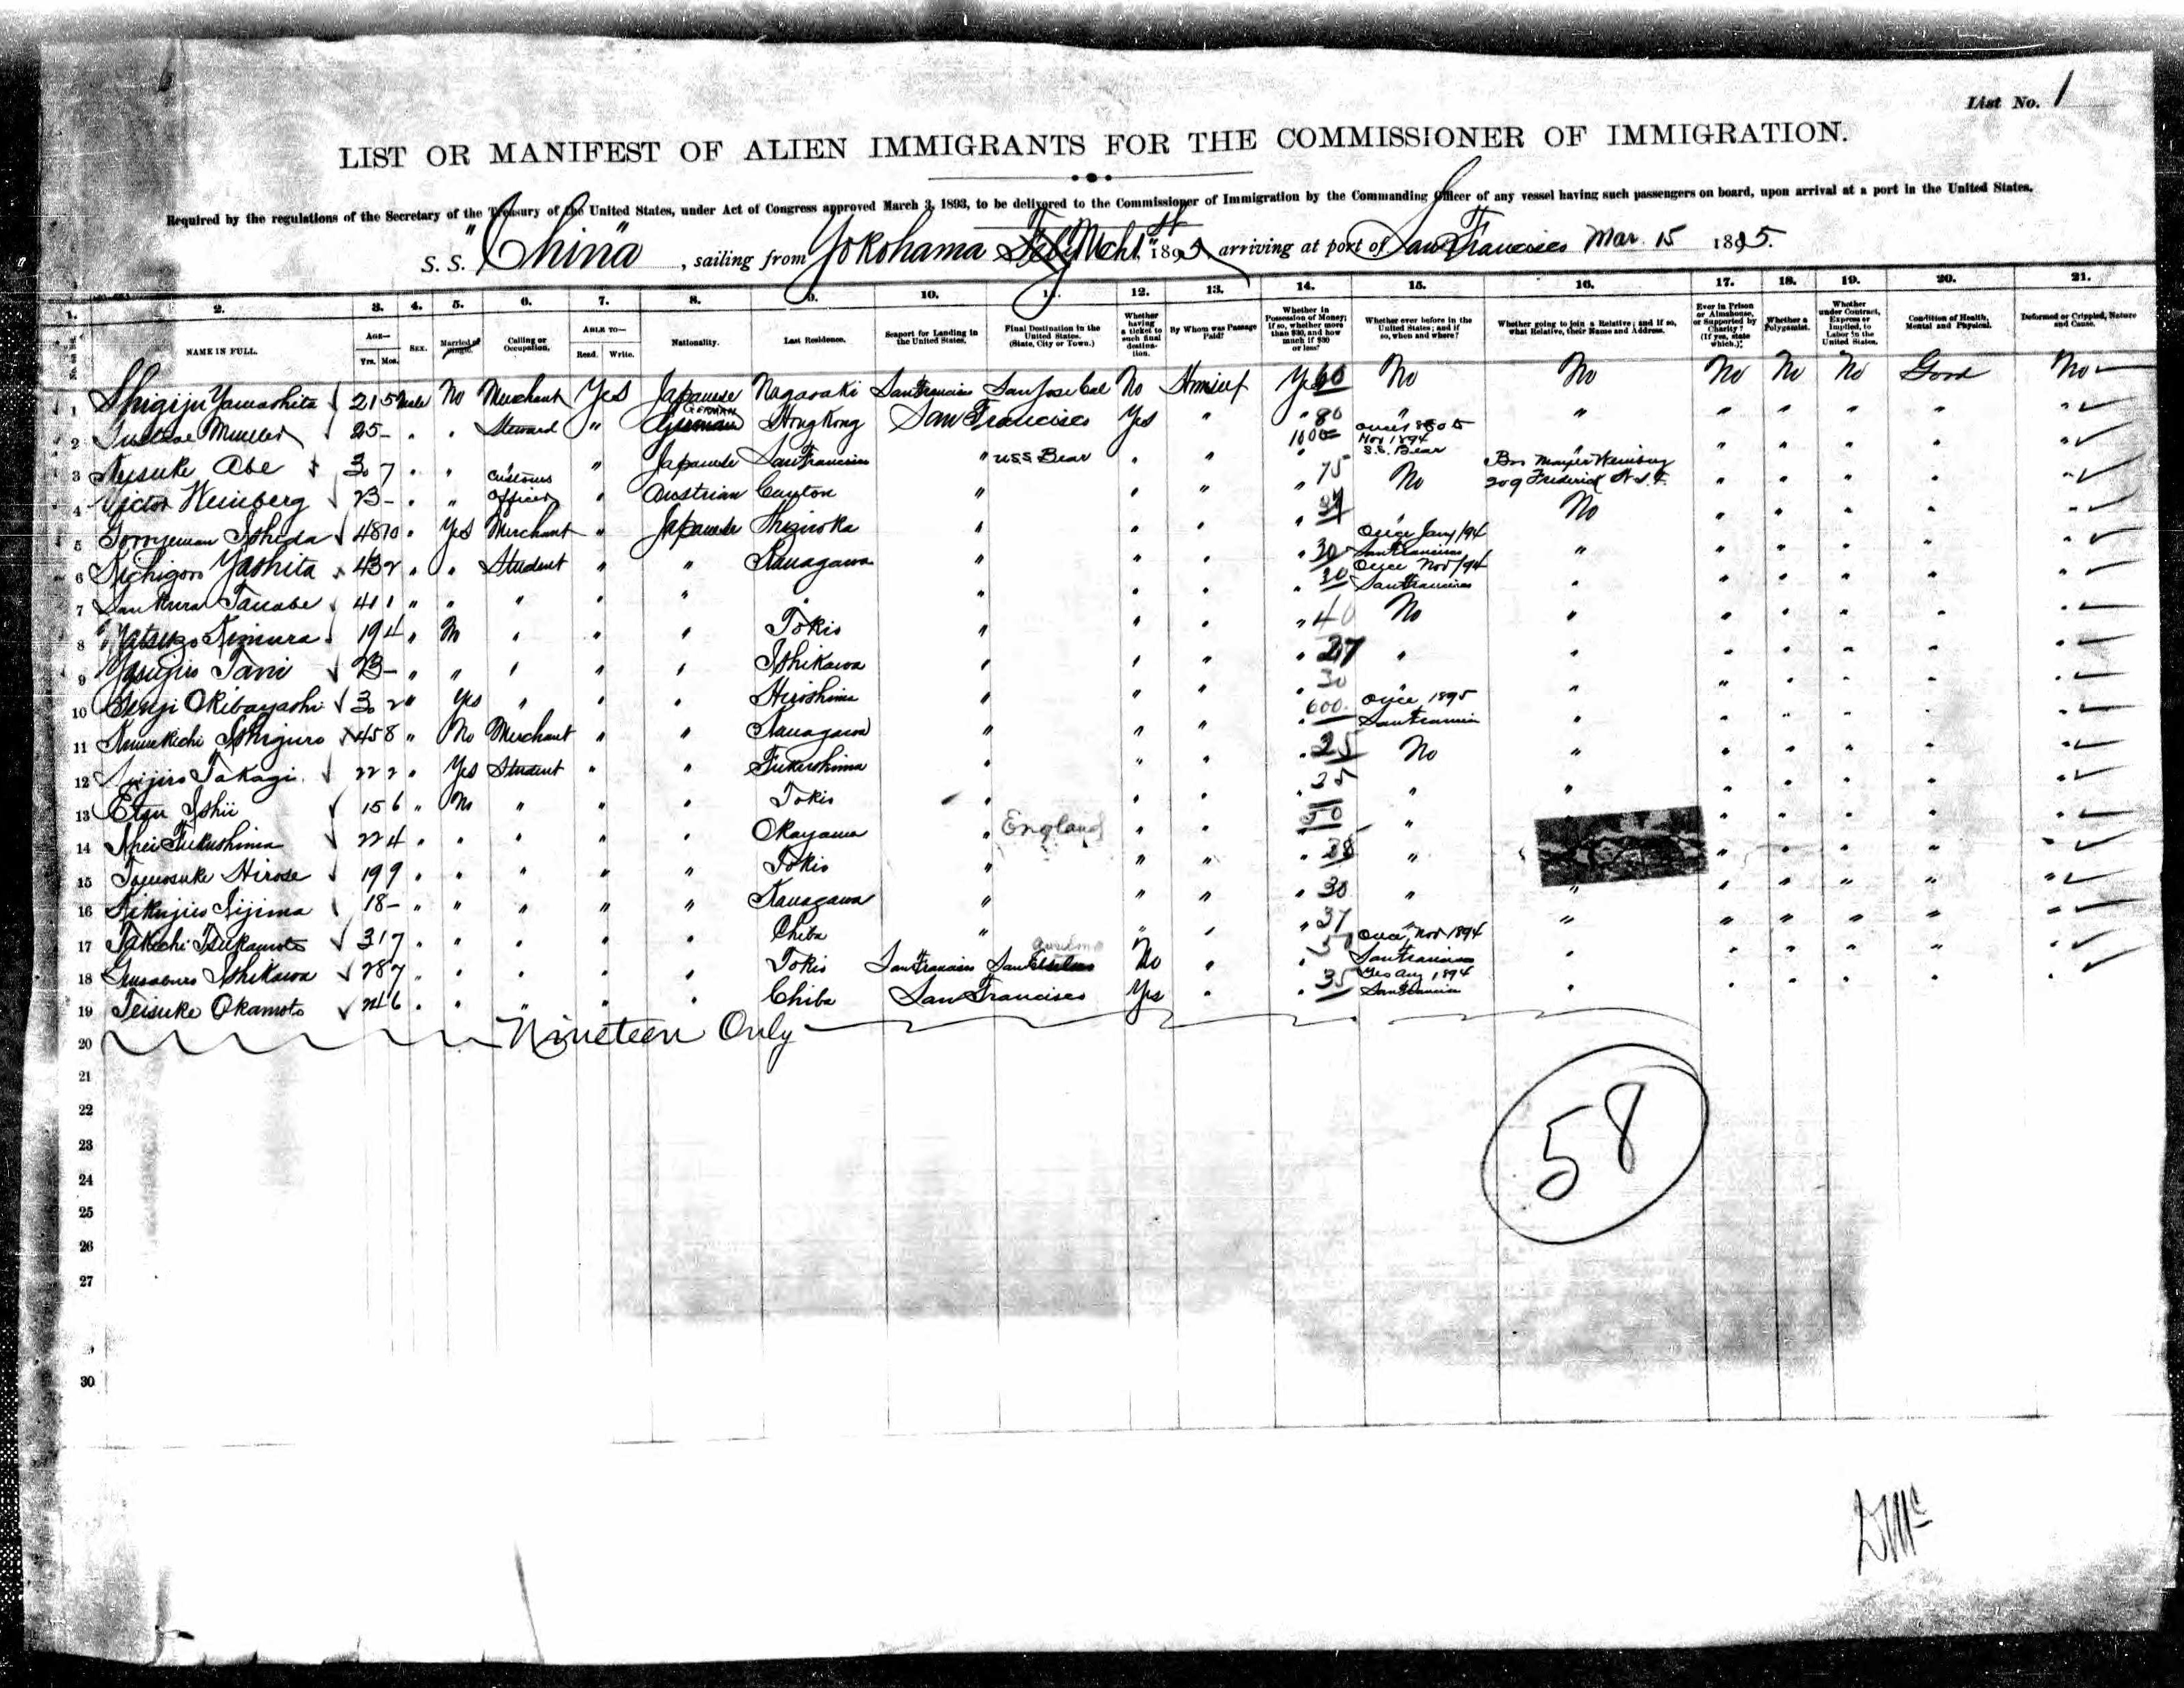 List No. 1
LIST OR MANIFEST OF ALIEN IMMIGRANTS FOR THE COMMISSIONER OF IMMIGRATION.
Required by the regulations of the Secretary of the Treasury of the United States, under Act of Congress approved March 3, 1893, to be delivered to the Commissioner of Immigration by the Commanding Officer of any vessel having such passengers on board, upon arrival at a port in the United States.
S. S. "China", sailing from Yokohama Mch 1st 1895, arriving at port of San Francisco Mar. 15 1895.
1. 2. 3. 4. 5. 6. 7. 8. 9. 10. 11. 12. 13. 14. 15. 16. 17. 18. 19. 20. 21.
NAME IN FULL. AGE— Yrs. Mos. SEX. Married or Single. Calling or Occupation. ABLE TO— Read. Write. Nationality. Last Residence. Seaport for Landing in the United States. Final Destination in the United States. (State, City or Town.) Whether having a ticket to such final destination. By Whom was Passage Paid? Whether in Possession of Money; if so, whether more than $30, and how much if $30 or less? Whether ever before in the United States; and if so, when and where? Whether going to join a Relative; and if so, what Relative, their Name and Address. Ever in Prison or Almshouse, or Supported by Charity? (If yes, state which.) Whether a Polygamist. Whether under Contract, Express or Implied, to Labor in the United States. Condition of Health, Mental and Physical. Deformed or Crippled, Nature and Cause.
1 Shigiju Yamashita 21 5 Male No Merchant Yes Japanese Nagasaki San Francisco San Jose Cal No Himself Yes 60 No No No No No Good No
2 Mueller 25 - " " Steward " German GERMAN Hong Kong San Francisco Yes " " 80 " " " " " " "
3 Keisuke Abe 30 7 " " " " Japanese San Francisco " USS Bear " " " 1000 Nov 1894 S.S. Bear " " " " " "
4 Victor Weinberg 23 - " " Customs Officer " Austrian Canton " " " " 75 No Bro Mayer Weinberg 209 Frederick St S.F. " " " " "
5 Ishida 48 10 " Yes Merchant " Japanese " " " " " No " " " " "
6 Yashita 43 2 " " Student " " Kanagawa " " " " 30 Once Jany/94 San Francisco " " " " " "
7 Tanabe 41 1 " " " " " " " " " " 30 Once Nov/94 San Francisco " " " " " "
8 Kimura 19 4 " No " " " Tokio " " " " 40 No " " " " " "
9 Yasujiro Tani 23 - " " " " " Ishikawa " " " " 27 " " " " " " "
10 Okibayashi 30 2 " Yes " " " Hiroshima " " " " 30 " " " " " " "
11 Ishiguro 45 8 " No Merchant " " Kanagawa " " " " 600 Once 1895 San Francisco " " " " " "
12 Takagi 22 2 " Yes Student " " Fukushima " " " " 25 No " " " " " "
13 Ishii 15 6 " No " " " Tokio " " " " 35 " " " " " " "
14 Fukushima 22 4 " " " " " Okayama " England " " 50 " " " " " "
15 Tomosuke Hirose 19 9 " " " " " Tokio " " " " 38 " " " " " "
16 Kikujiro Iijima 18 - " " " " " Kanagawa " " " " 30 " " " " " " "
17 Takichi Tsukamoto 31 7 " " " " " Chiba " " " " 37 " " " " " " "
18 Ishikawa 28 7 " " " " " Tokio San Francisco No " " Once, Nov 1894 San Francisco " " " " " "
19 Teisuke Okamoto 24 6 " " " " " Chiba San Francisco Yes " " 35 Yes Aug 1894 San Francisco " " " " " "
20 Nineteen Only
21
22
23
24
25
26
27
30
58